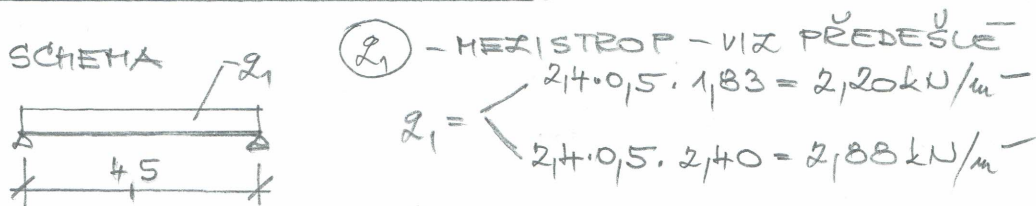 SCHEMA
q₁
4,5
q₁ - MEZISTROP - VIZ PŘEDEŠLÉ
q₁ =
2,4·0,5·1,83 = 2,20 kN/m
2,4·0,5·2,40 = 2,88 kN/m